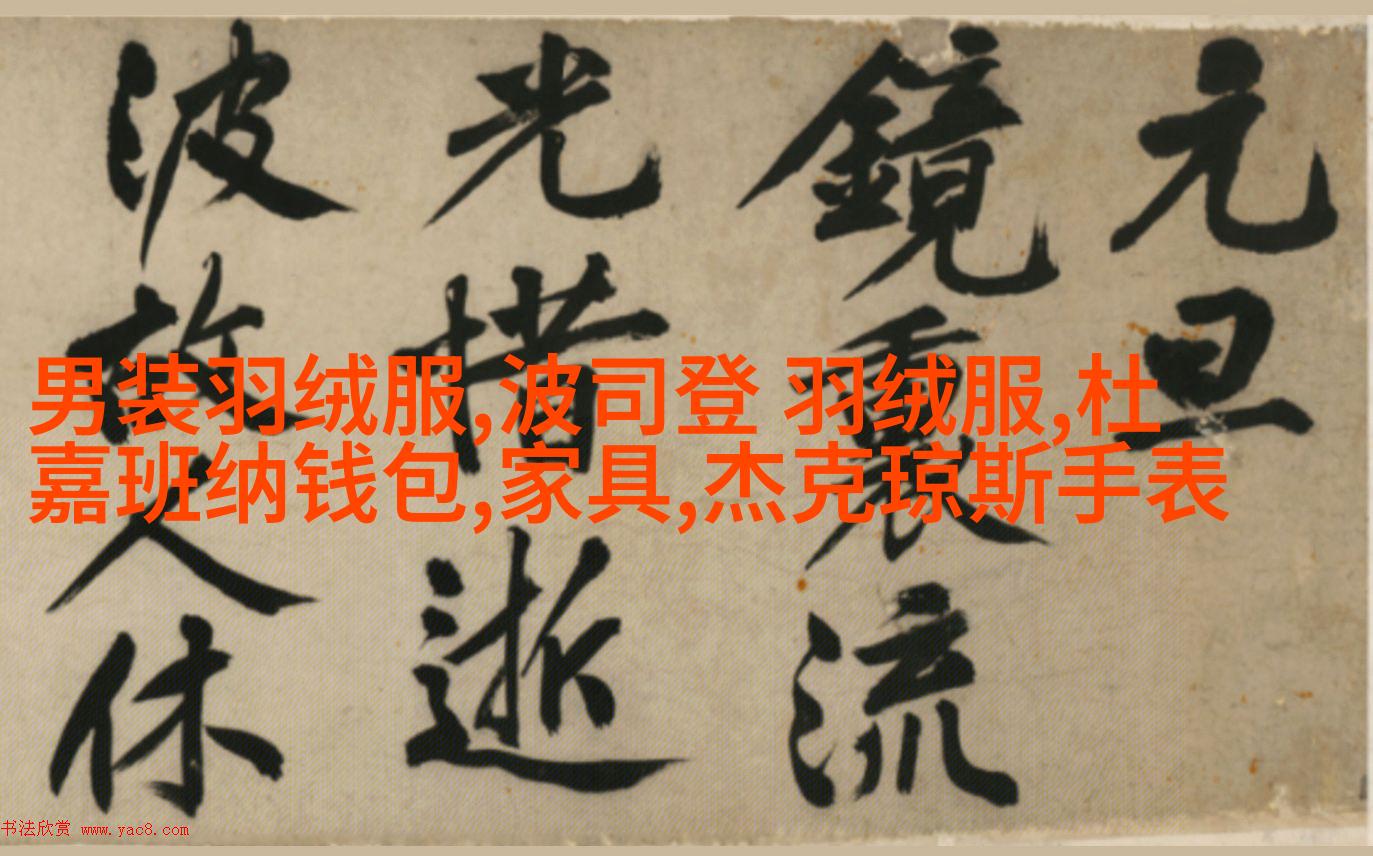 元旦
鏡裏流
光惜逝
波故人休
男装羽绒服,波司登 羽绒服,杜
嘉班纳钱包,家具,杰克琼斯手表
书法欣赏 www.yac8.com